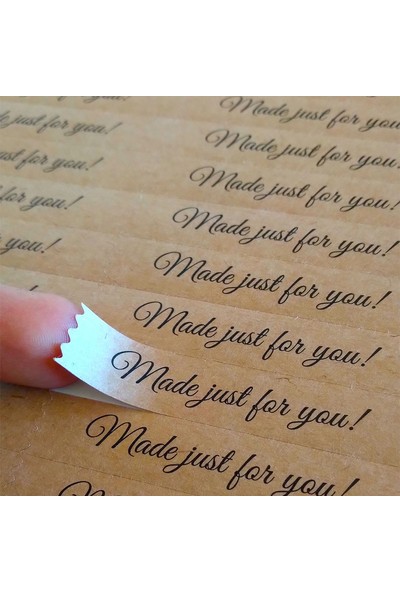 Made just for you!
Made just for you!
Made just for you!
Made just for you!
Made just for you!
Made just for you!
Made just for you!
Made just for you!
for you!
de just for you!
just for you!
for you!
for you!